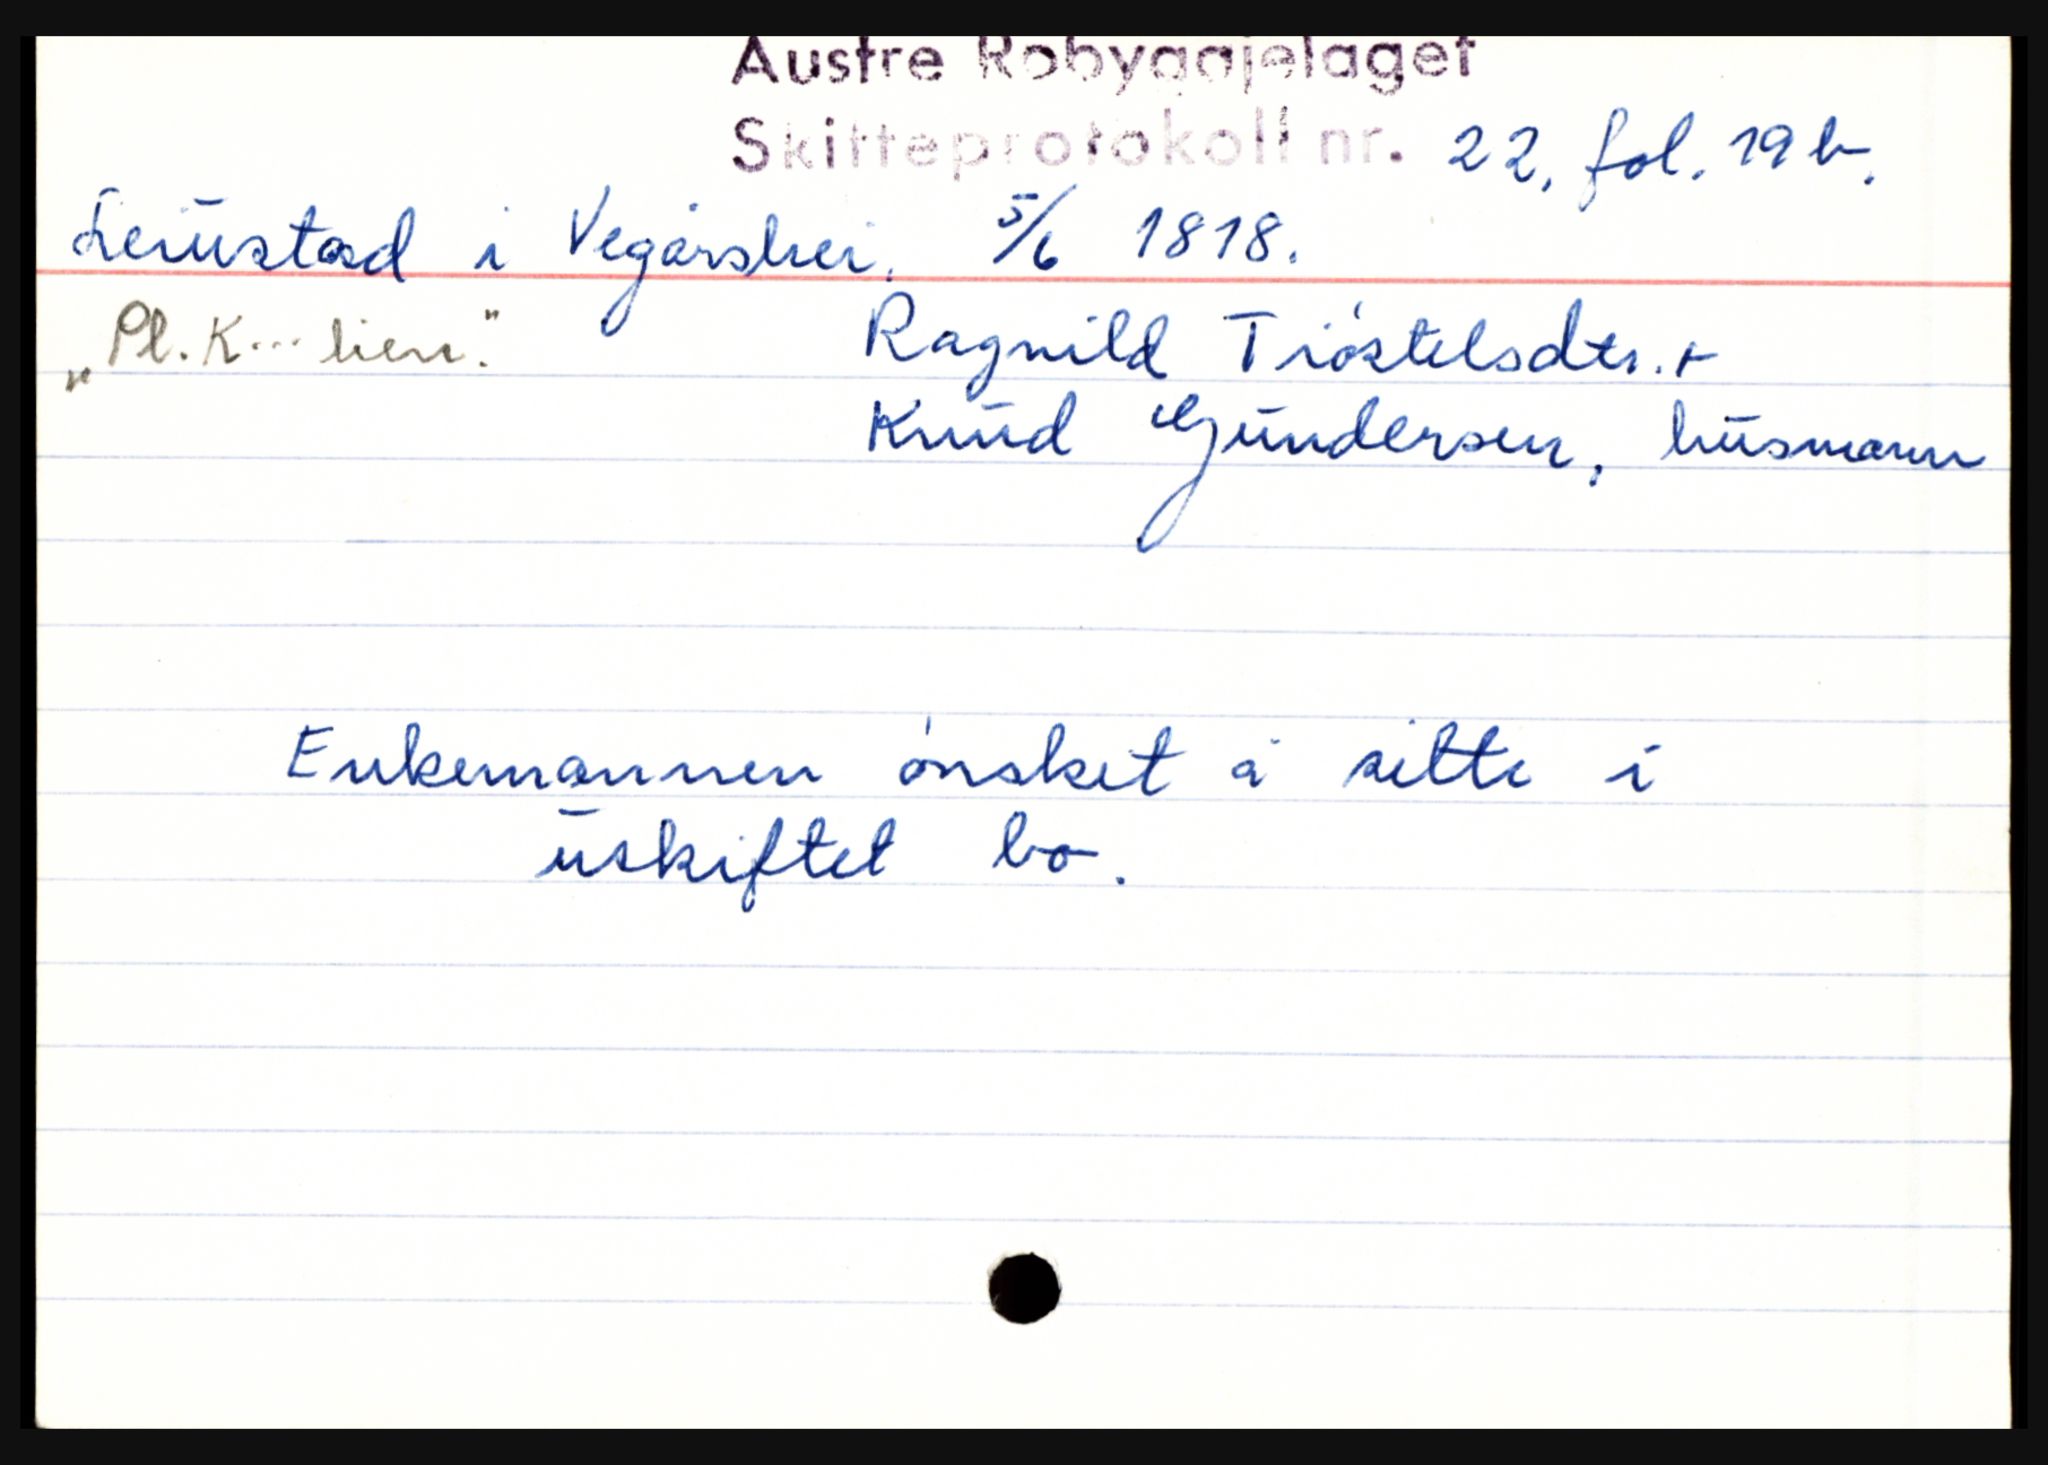 Austre Robyggjelaget
Skifteprotokoll nr. 22, fol. 19 b.
Leiüstad i Vegårshei. 5/6 1818.
"Pl. K... lien."
Ragnild Tiöstelsdtr. +
Knüd Gündersen, hüsmann
Enkemannen ønsket å sitte i
üskiftet bo.